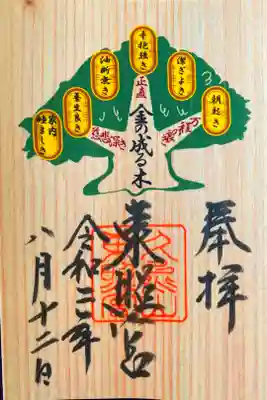 朝起き
潔ぎよき
辛抱強き
油断無き
養生良き
家内睦ましき
正直
慈悲深き
金の成る木
奉拝
東照宮
令和三年
八月十二日